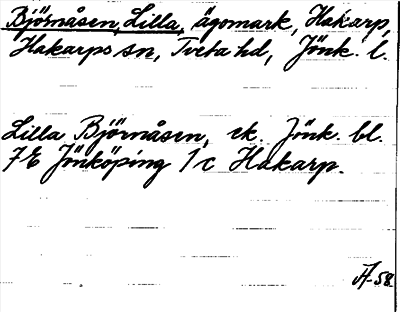 Björnåsen, Lilla, ägomark, Hakarp,
Hakarps sn, Tveta hd, Jönk. l.
Lilla Björnåsen, ek. Jönk. bl.
7E Jönköping 1c Hakarp.
A-58.